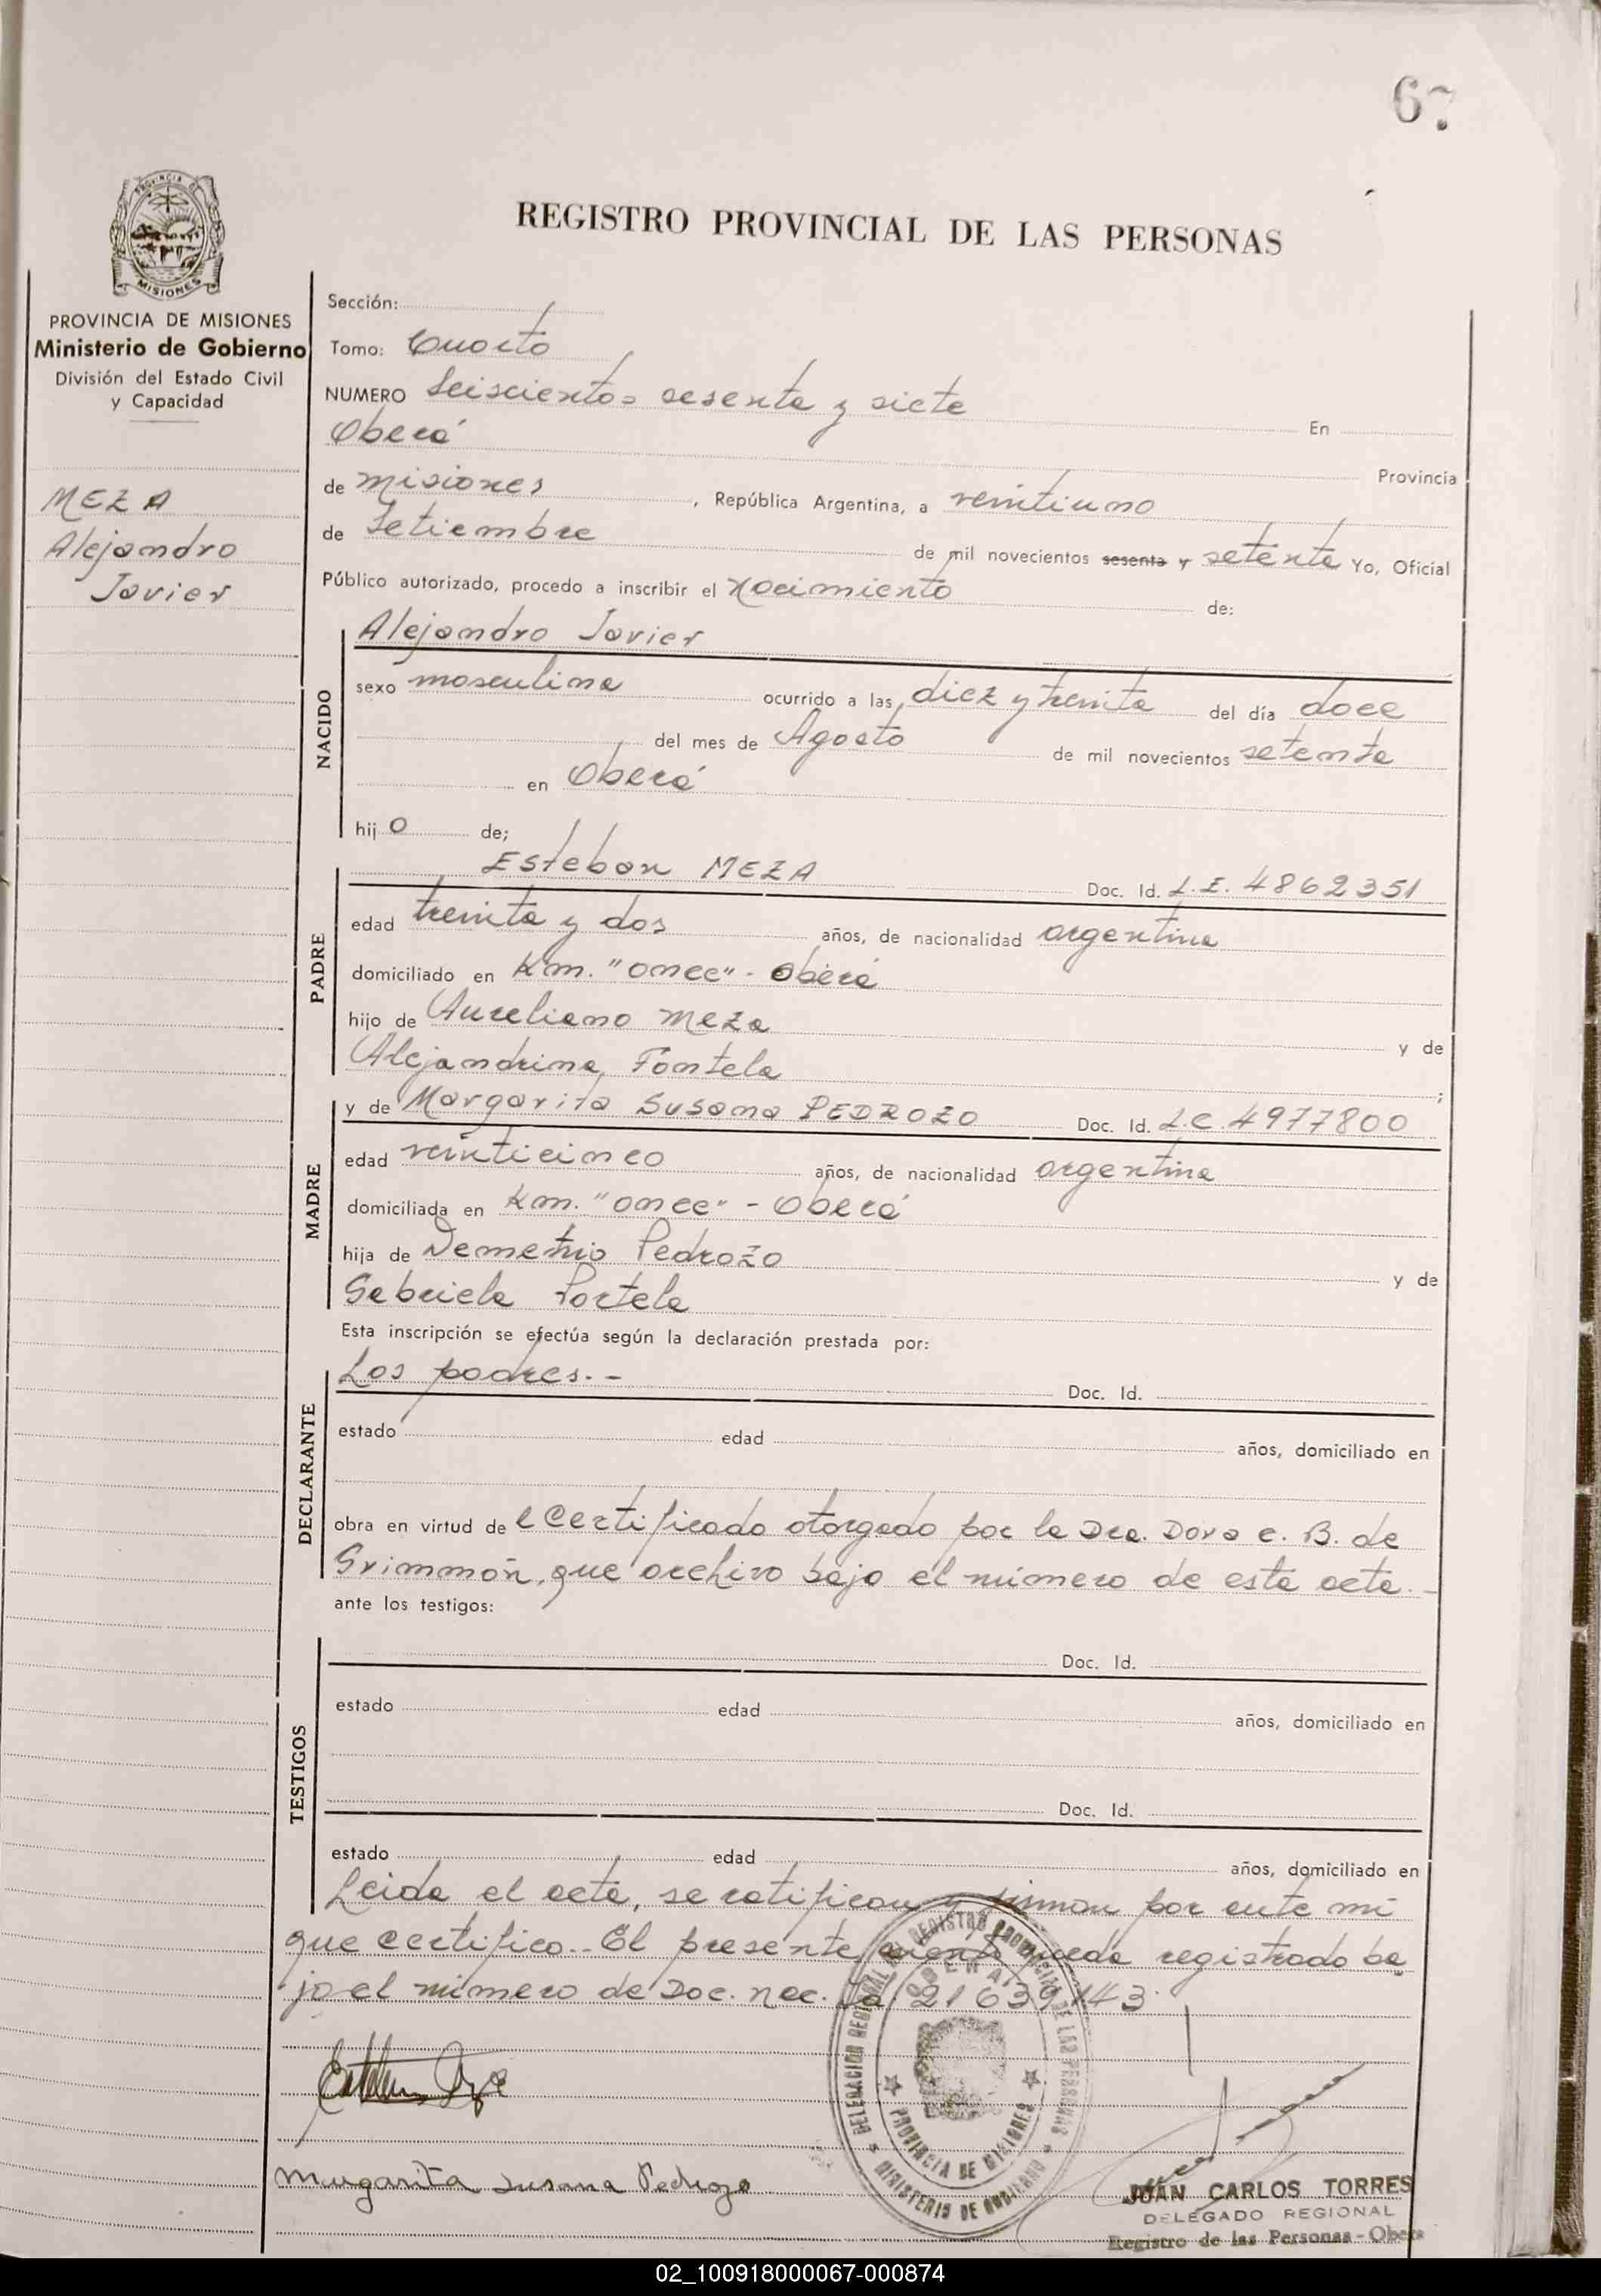 67
REGISTRO PROVINCIAL DE LAS PERSONAS
PROVINCIA DE
MISIONES
PROVINCIA DE MISIONES
Ministerio de Gobierno
División del Estado Civil
y Capacidad
MEZA
Alejandro
Javier
Sección:
Tomo: Cuarto
NUMERO Seiscientos sesenta y siete En
Oberá Provincia
de Misiones, República Argentina, a veintiuno
de Setiembre de mil novecientos sesenta y setenta Yo, Oficial
Público autorizado, procedo a inscribir el nacimiento de:
NACIDO
Alejandro Javier
sexo masculino ocurrido a las diez y treinta del día doce
del mes de Agosto de mil novecientos setenta
en Oberá
hijo de;
PADRE
Esteban MEZA Doc. Id. L.E. 4862351
edad treinta y dos años, de nacionalidad argentina
domiciliado en Km. "once" - Oberá
hijo de Aureliano Meza y de
Alejandrina Fontela ;
MADRE
y de Margarita Susana PEDROZO Doc. Id. L.C. 4977800
edad veinticinco años, de nacionalidad argentina
domiciliada en Km. "once" - Oberá
hija de Demetrio Pedrozo y de
Gabriela Portela
Esta inscripción se efectúa según la declaración prestada por:
DECLARANTE
Los padres.- Doc. Id.
estado edad años, domiciliado en
obra en virtud de l Certificado otorgado por la Dra. Dora C. B. de
Grimmón, que archivo bajo el número de esta acta.-
ante los testigos:
TESTIGOS
Doc. Id.
estado edad años, domiciliado en
Doc. Id.
estado edad años, domiciliado en
Leida el acta, se ratifican y firman por ante mí
que certifico.- El presente queda registrado ba
jo el número de Doc. Nac. Id 21639143
DELEGACION REGIONAL DEL REGISTRO PROVINCIAL DE LAS PERSONAS
OBERA
PROVINCIA DE MISIONES
MINISTERIO DE GOBIERNO
Margarita Susana Pedrozo
JUAN CARLOS TORRES
DELEGADO REGIONAL
Registro de las Personas - Oberá
02_100918000067-000874